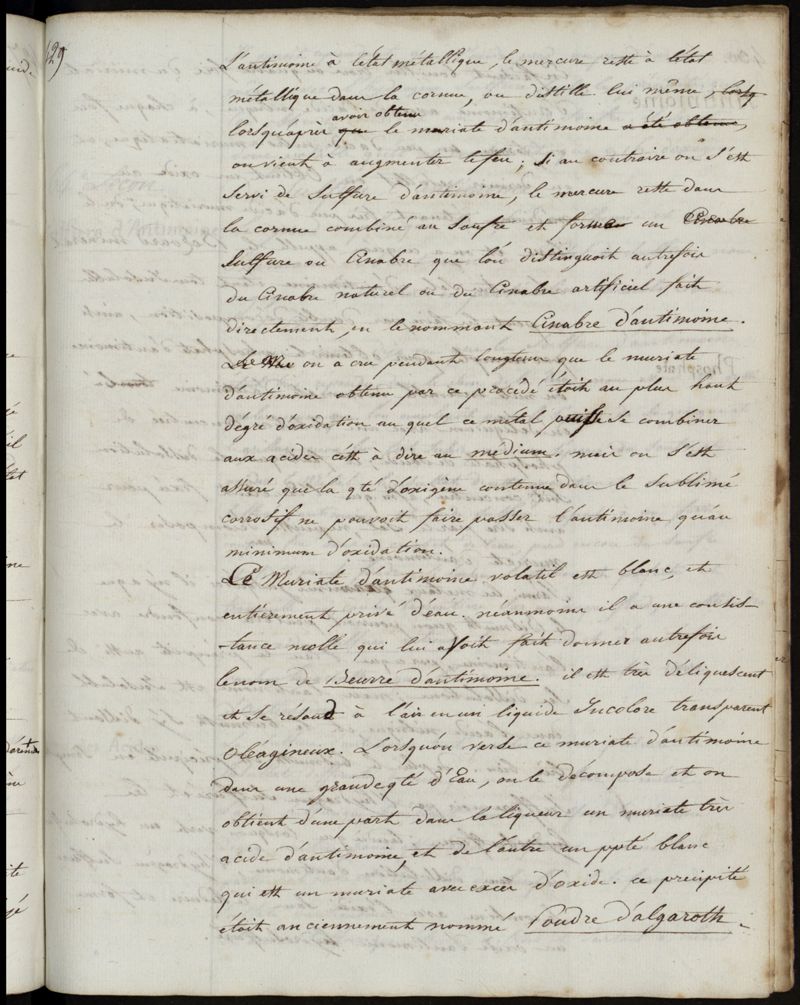 429
L'antimoine à l'état métallique, le mercure reste à l'état
métallique dans la cornue, ou distille lui même, lorsq
avoir obtenu
lorsqu'après que le muriate d'antimoine a été obtenu,
on vient à augmenter le feu; si au contraire on s'est
servi de sulfure d'antimoine, le mercure reste dans
la cornue combiné au soufre et forme un Cinabre
sulfure ou Cinabre que l'on distinguoit autrefois
du Cinabre naturel ou du Cinabre artificiel fait
directement, en le nommant Cinabre d'antimoine.
on a cru pendant longtems que le muriate
d'antimoine obtenu par ce procédé étoit au plus haut
dégré d'oxidation au quel ce métal puisse se combiner
aux acides c'est à dire au medium. mais on s'est
assuré que la qté d'oxigène contenue dans le sublimé
corrosif ne pouvoit faire passer l'antimoine qu'au
minimum d'oxidation.
Le Muriate d'antimoine volatil est blanc, et
entièrement privé d'eau. néanmoins il a une consis-
-tance molle qui lui avoit fait donner autrefois
le nom de Beurre d'antimoine. il est très déliquescent
et se résoud à l'air en un liquide Incolore transparent
Oléagineux. Lorsqu'on verse ce muriate d'antimoine
dans une grande qté d'Eau, on le décompose et on
obtient d'une part dans la liqueur un muriate très
acide d'antimoine, et de l'autre un ppté blanc
qui est un muriate avec excès d'oxide. ce precipité
étoit anciennement nommé Poudre d'algaroth.